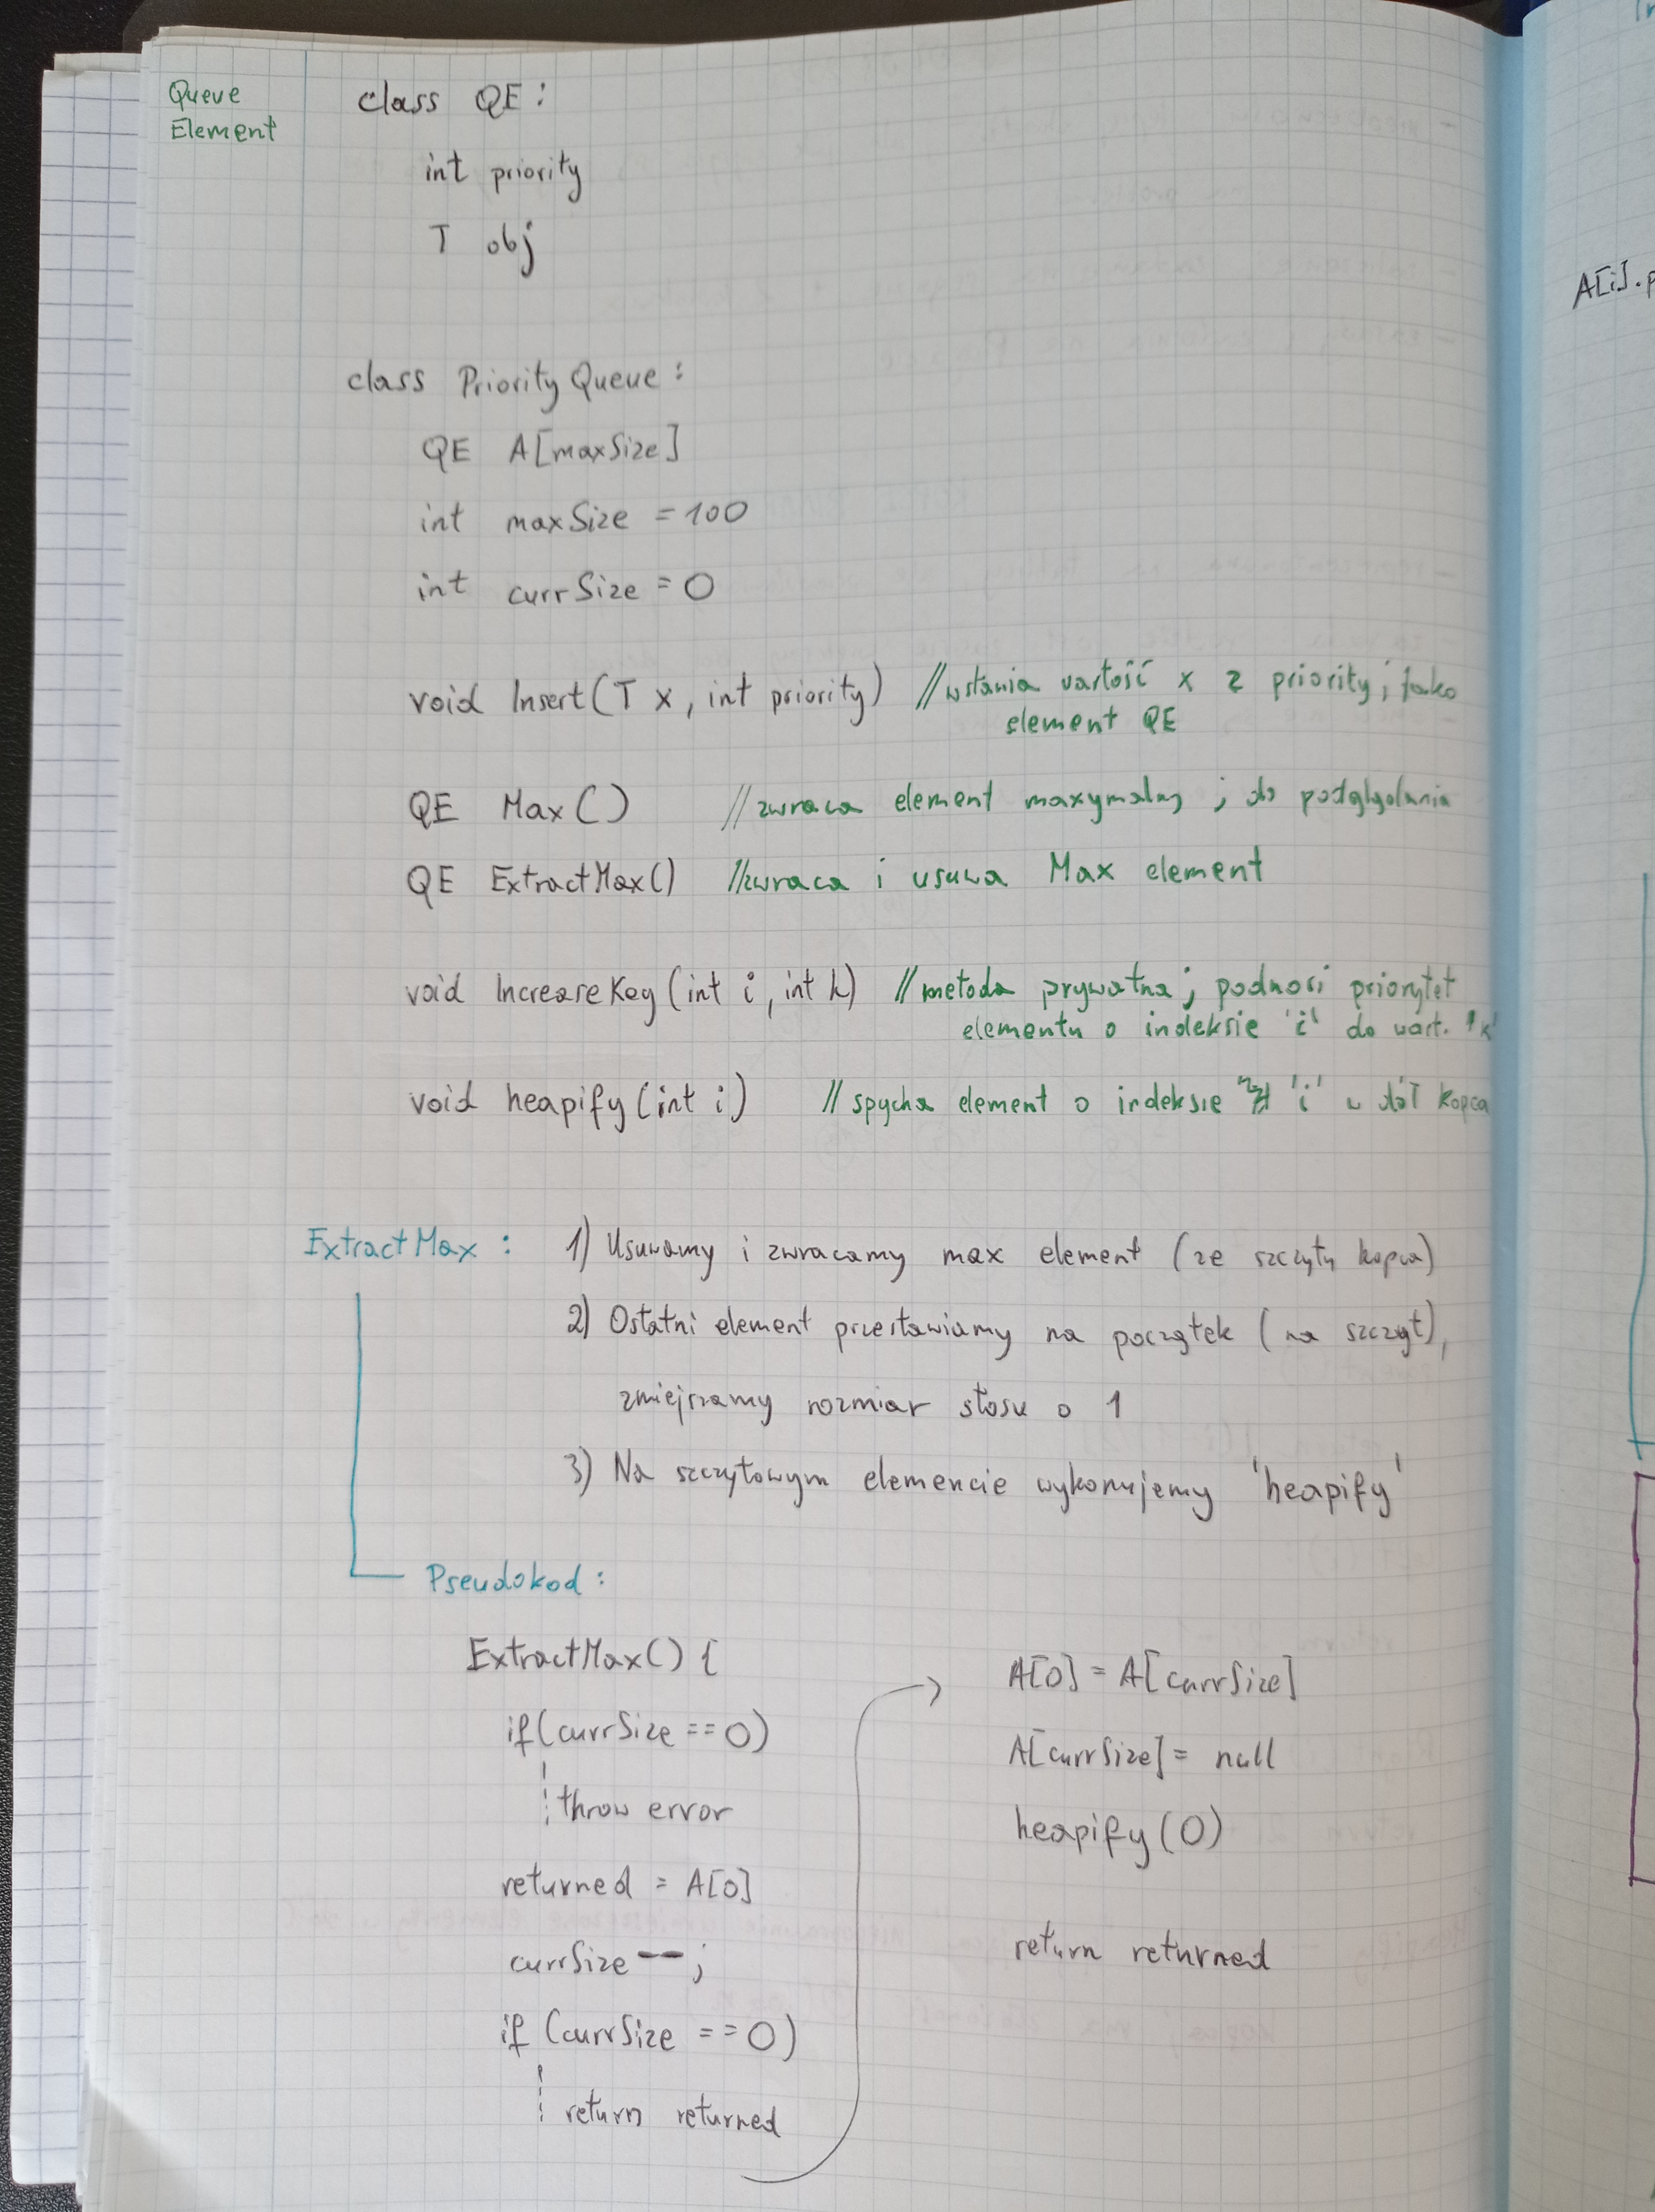 Queue
Element
class QE:
int priority
T obj
class PriorityQueue:
QE A[maxSize]
int maxSize = 100
int currSize = 0
void Insert(T x, int priority) //wstawia wartość x z priority; jako
element QE
QE Max() //zwraca element maxymalny ; do podglądania
QE ExtractMax() //zwraca i usuwa Max element
void IncreaseKey(int i, int k) //metoda prywatna; podnosi priorytet
elementu o indeksie 'i' do wart. 'k'
void heapify(int i) //spycha element o indeksie 'i' w dół kopca
ExtractMax: 1) Usuwamy i zwracamy max element (ze szczytu kopca)
2) Ostatni element przestawiamy na początek (na szczyt),
zmiejszamy rozmiar stosu o 1
3) Na szczytowym elemencie wykonujemy 'heapify'
Pseudokod:
ExtractMax() {
if(currSize == 0)
throw error
returned = A[0]
currSize--;
if (currSize == 0)
return returned
A[0] = A[currSize]
A[currSize] = null
heapify(0)
return returned
A[i].p